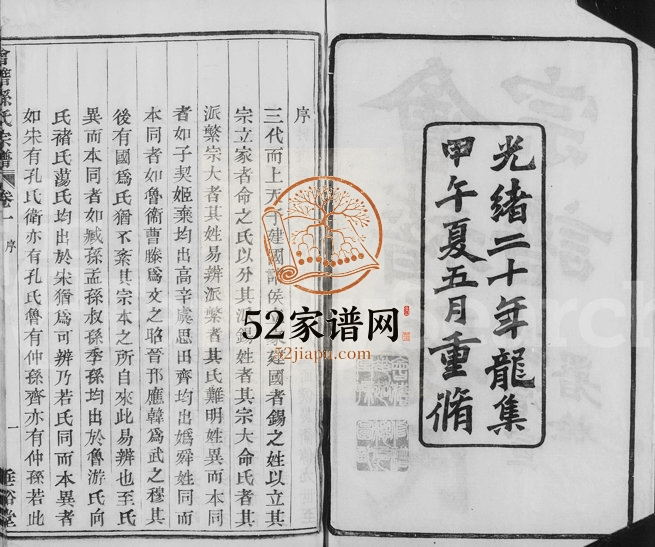 光緒二十年龍集
甲午夏五月重脩
序
三代而上天子建國諸侯 家建國者錫之姓以立其
宗立家者命之氏以分其 錫姓者其宗大命氏者其
派繁宗大者其姓易辨派繁者其氏難明姓異而本同
者如子契姬棄均出高辛虞思田齊均出媯舜姓同而
本同者如魯衞曹滕爲文之昭晉邗應韓爲武之穆其
後有國爲氏猶不棄其宗本之所自來此易辨也至氏
異而本同者如臧孫孟孫叔孫季孫均出於魯游氏向
氏褚氏蕩氏均出於宋猶爲可辨乃若氏同而本異者
如宋有孔氏衞亦有孔氏魯有仲孫齊亦有仲孫若此
會稽孫氏宗譜
卷一
序
一
垂裕堂
52家谱网
52jiapu.com